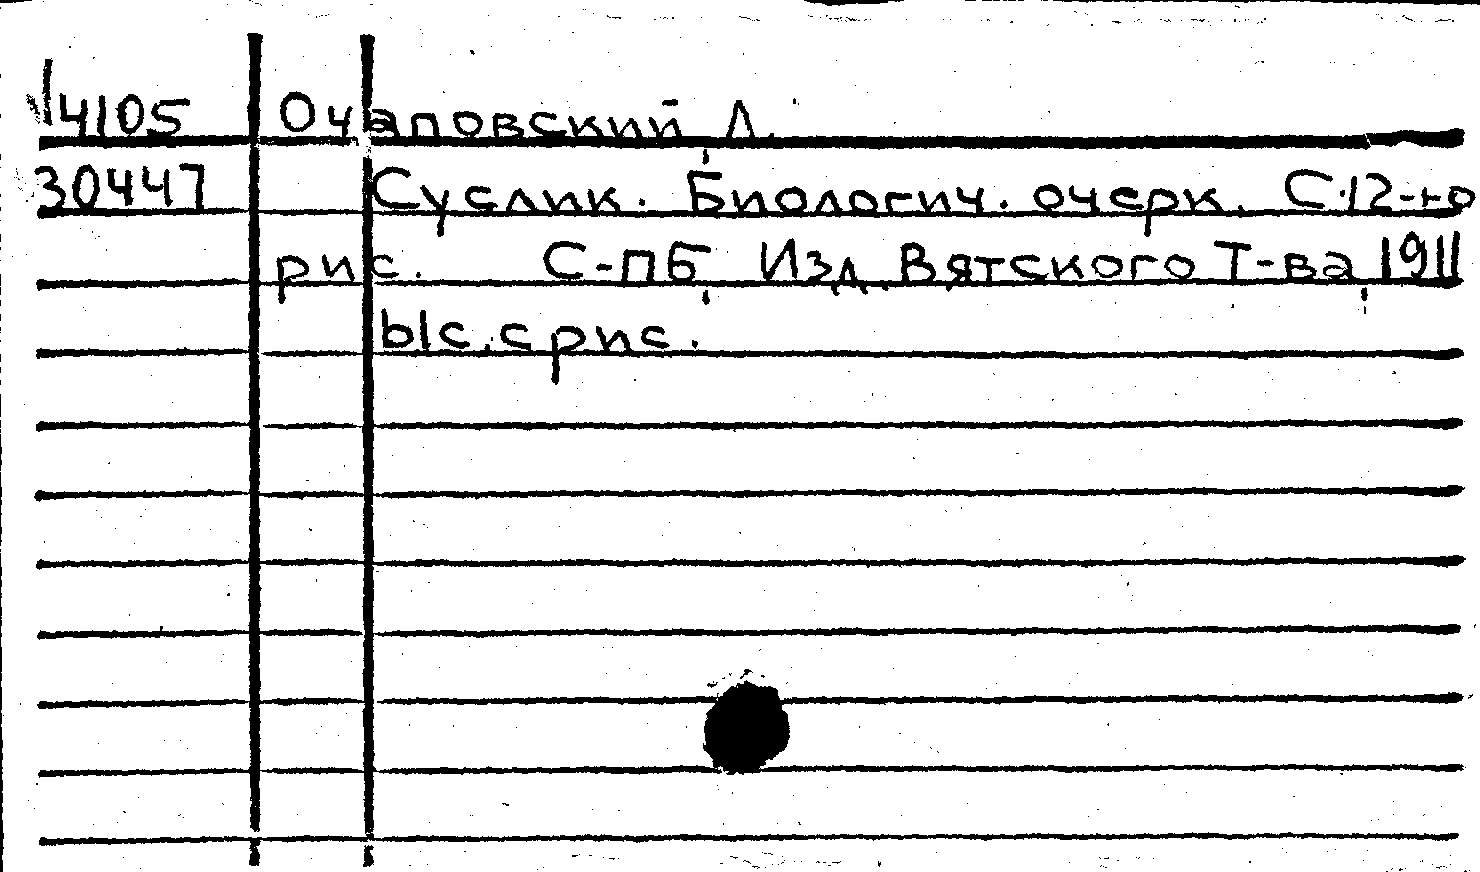 14105 Очаповский Д.
30447 Суслик. Биологич. очерк. С 12-ю
рис. С-ПБ, Изд. Вятского Т-ва, 1911
61с. с рис.